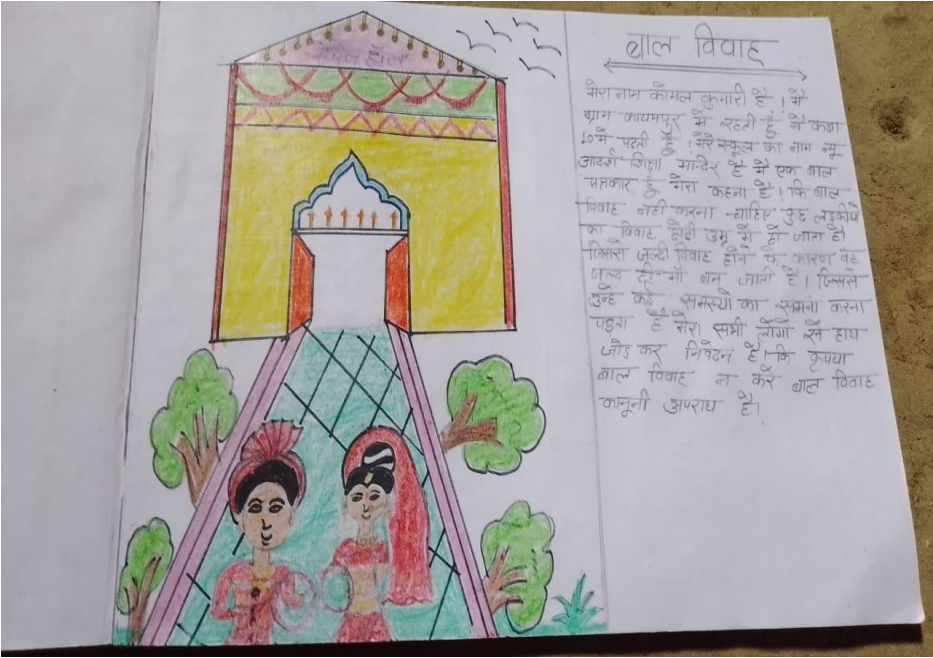 मैरेज हॉल
बाल विवाह
मेरा नाम कोमल कुमारी है। मैं
ग्राम कायमपुर में रहती हूँ मैं कक्षा
10 में पढती हूँ। मेरे स्कूल का नाम न्यू
आदर्श शिक्षा मन्दिर है मैं एक बाल
पत्रकार हूँ मेरा कहना है। कि बाल
विवाह नही करना चाहिए कुछ लड़कीयो
का विवाह छोटी उम्र में हो जाता है।
जिससे जल्दी विवाह होने के कारण वह
जल्द ही माँ बन जाती है। जिससे
उन्हे कई समस्यो का सामना करना
पड़ता है मेरा सभी लोगों से हाथ
जोड़ कर निवेदन है। कि कृपया
बाल विवाह न करे बाल विवाह
कानूनी अपराध है।